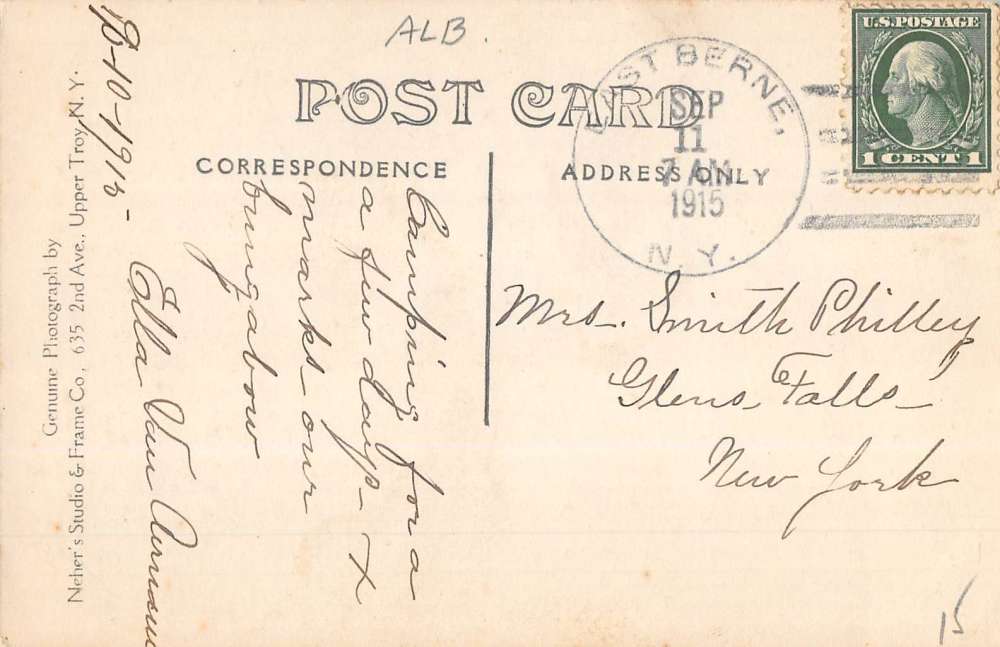 ALB.
U.S. POSTAGE
1 CENT 1
EAST BERNE,
SEP
11
7 AM
1915
N. Y.
POST CARD
CORRESPONDENCE
ADDRESS ONLY
Camping for a
a few days - x
marks our
bungabow
Ella Van
10-1915-
Mrs. Smith Philley
Glens Falls
New York
Genuine Photograph by
Neher's Studio & Frame Co., 635 2nd Ave., Upper Troy, N. Y.
15